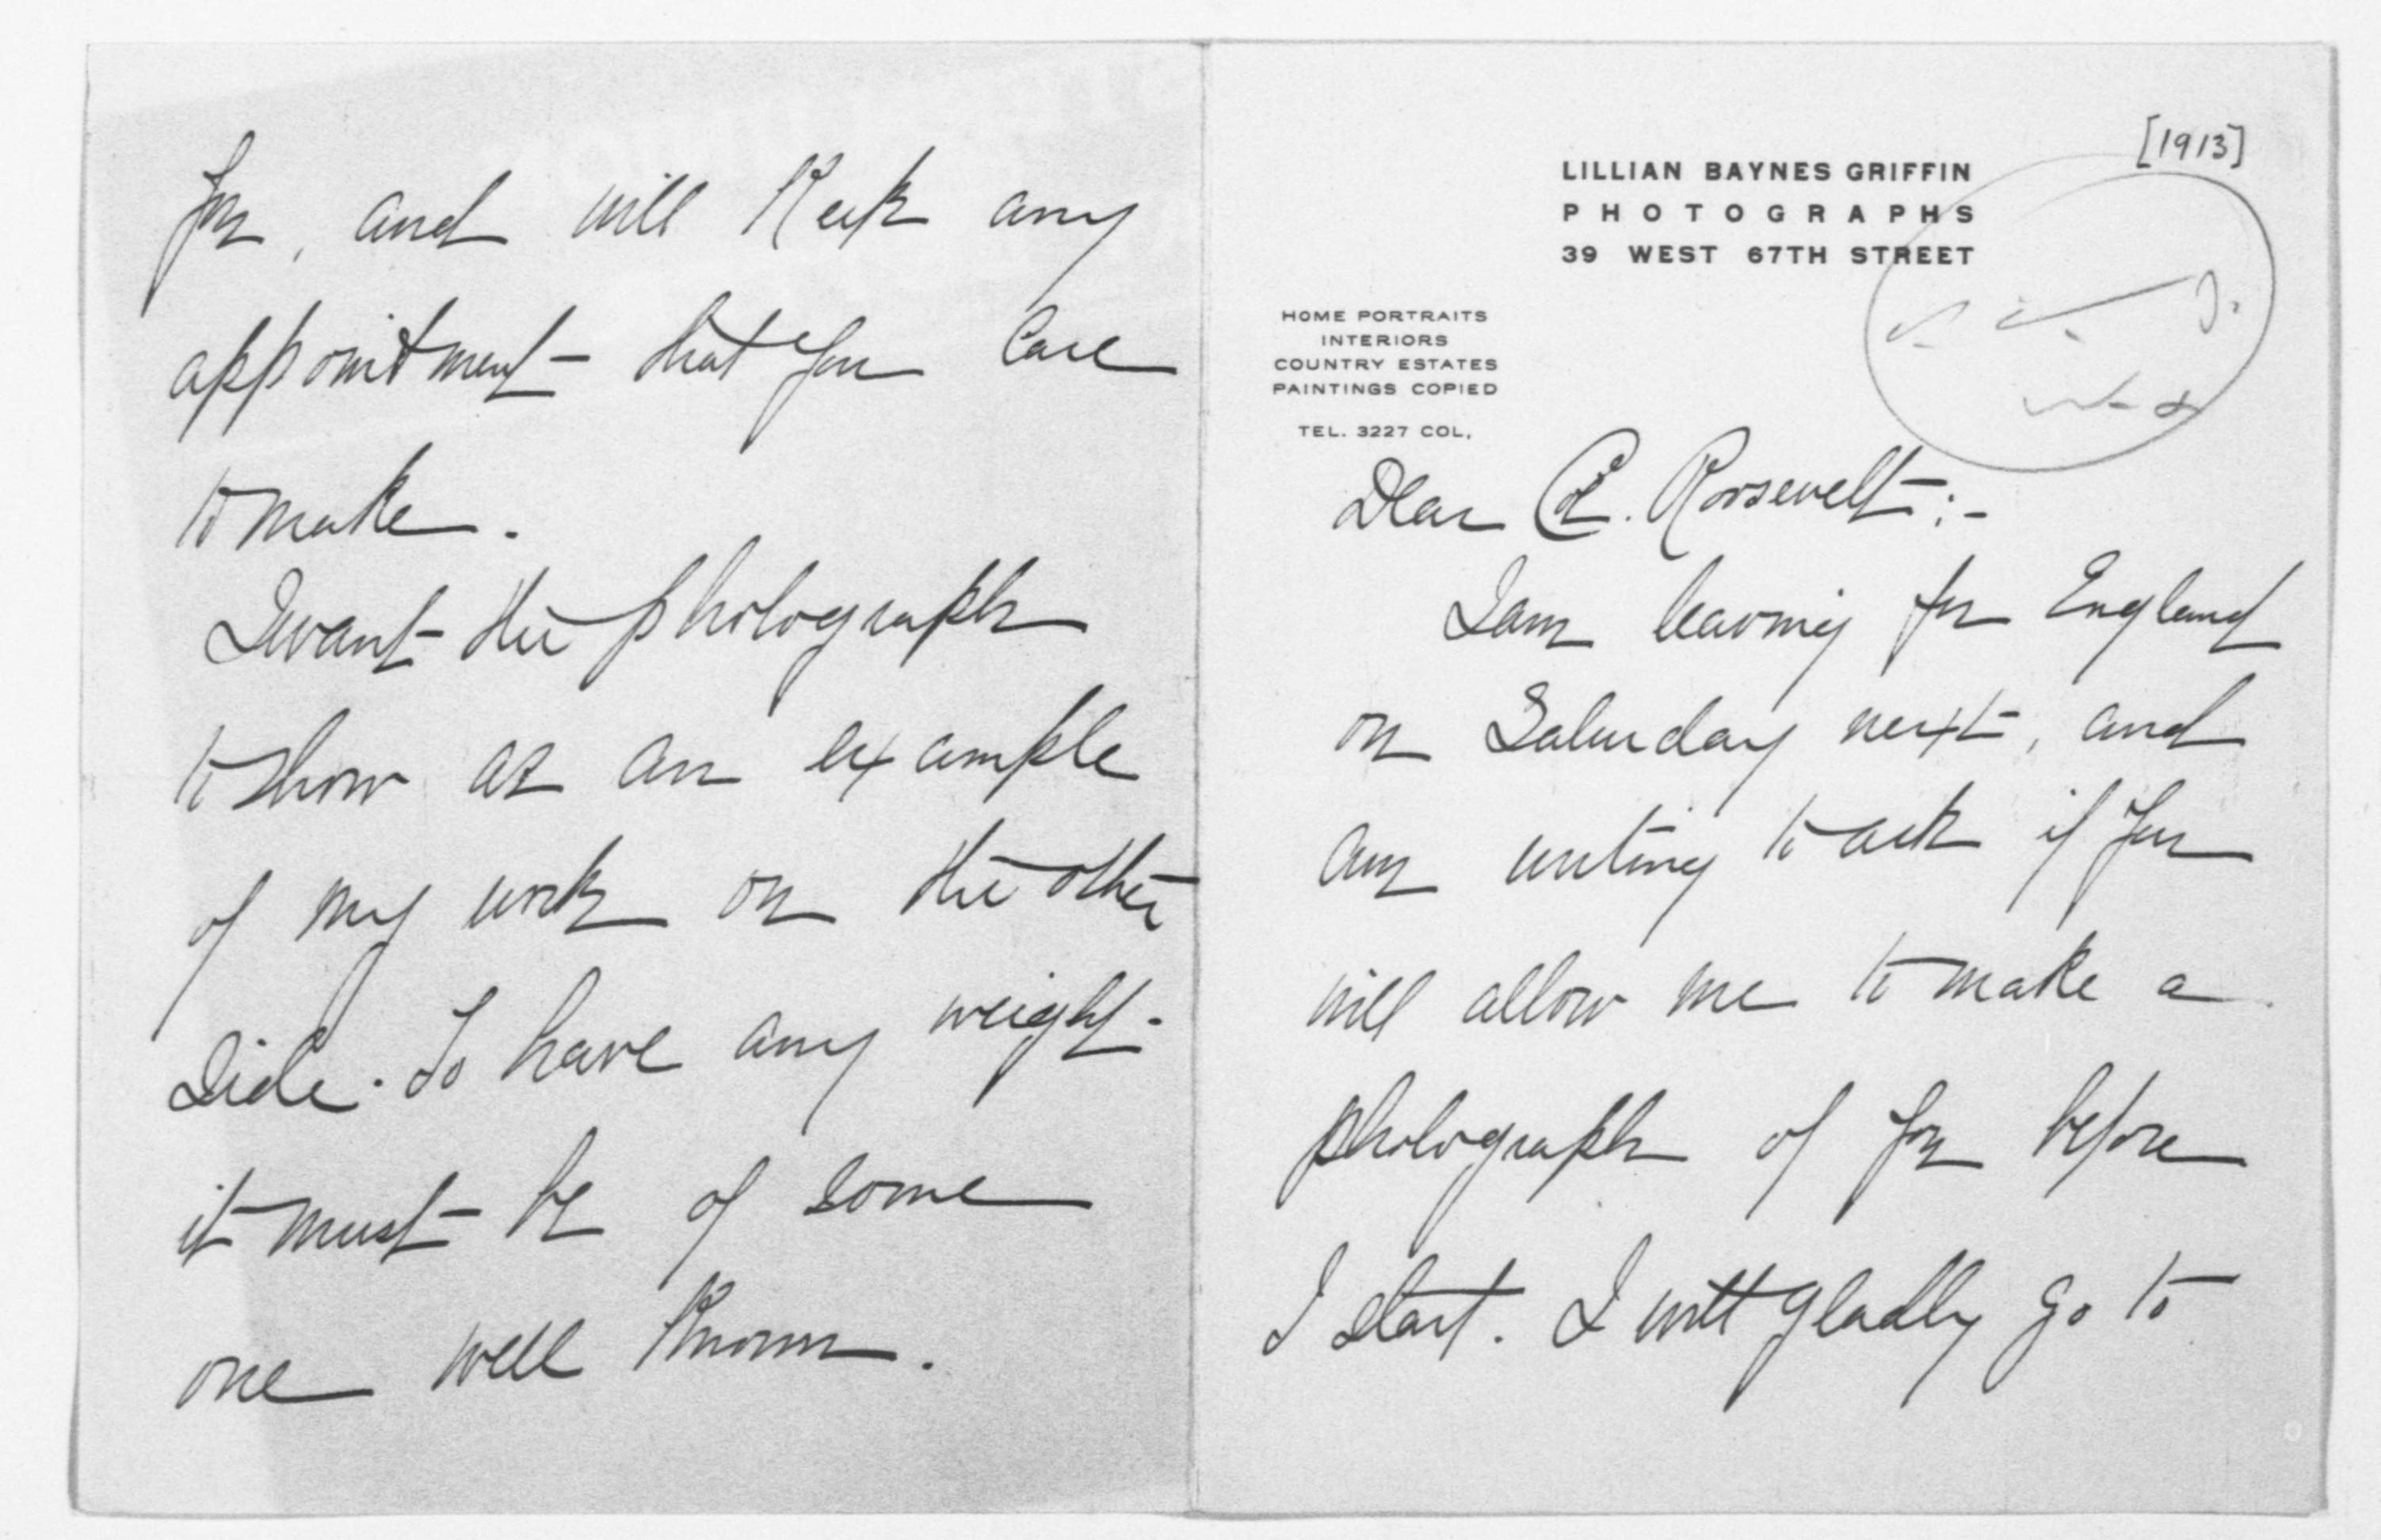 [1913]
LILLIAN BAYNES GRIFFIN
PHOTOGRAPHS
39 WEST 67TH STREET
HOME PORTRAITS
INTERIORS
COUNTRY ESTATES
PAINTINGS COPIED
TEL. 3227 COL.
Dear Col. Roosevelt:-
I am leaving for England
on Saturday next, and
am writing to ask if you
will allow me to make a
photograph of you before
I start. I will gladly go to
you, and will keep any
appointment that you care
to make.
I want the photograph
to show as an example
of my work on the other
side. To have any weight
it must be of some
one well known.